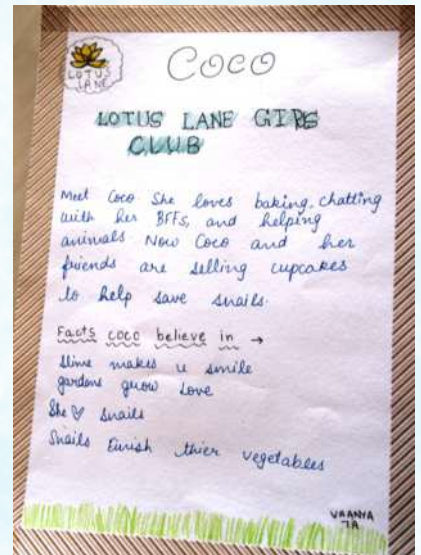 LOTUS
LANE
Coco
LOTUS LANE GIRS
CLUB
Meet Coco She loves baking, chatting
with her BFFs, and helping
animals Now Coco and her
friends are selling cupcakes
to help save snails.
Facts coco believe in →
slime makes u smile
gardens grow Love
She ♡ snails
Snails Finish thier vegetables
VAANYA
7A